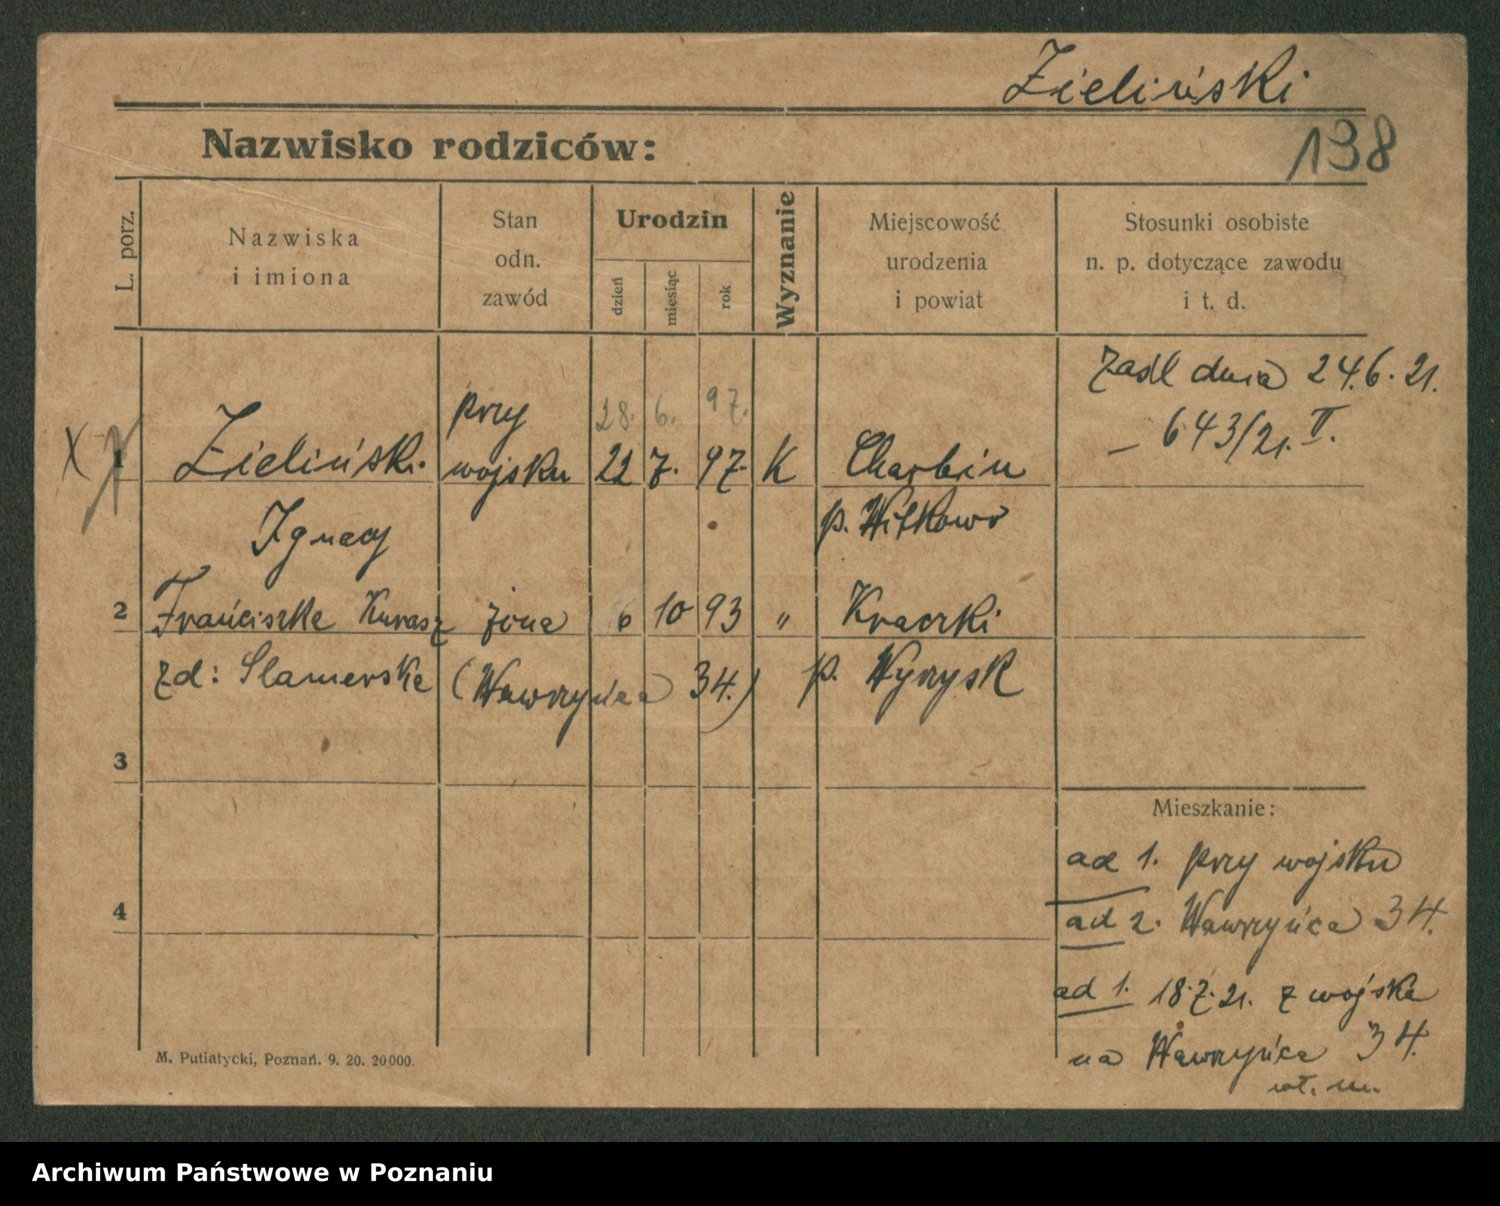 Zieliński
138
Nazwisko rodziców:
L. porz.
Nazwiska
i imiona
Stan
odn.
zawód
Urodzin
dzień
miesiąc
rok
Wyznanie
Miejscowość
urodzenia
i powiat
Stosunki osobiste
n. p. dotyczące zawodu
i t. d.
zaśl dnia 24.6.21.
– 643/21. II.
X 1 Zieliński przy wojsku 28. 6. 97. 22 7. 97. K Charbin
Ignacy p. Witkowo
2 Franciszka Kurasz żona 6 10 93 „ Kraczki
zd: Slamerska (Wawrzyńca 34.) p. Wyrzysk
3
4
Mieszkanie:
ad 1. przy wojsku
ad 2. Wawrzyńca 34.
ad 1. 18.7.21. z wojska
na Wawrzyńca 34.
wł. m.
M. Putiatycki, Poznań. 9. 20. 20000.
Archiwum Państwowe w Poznaniu